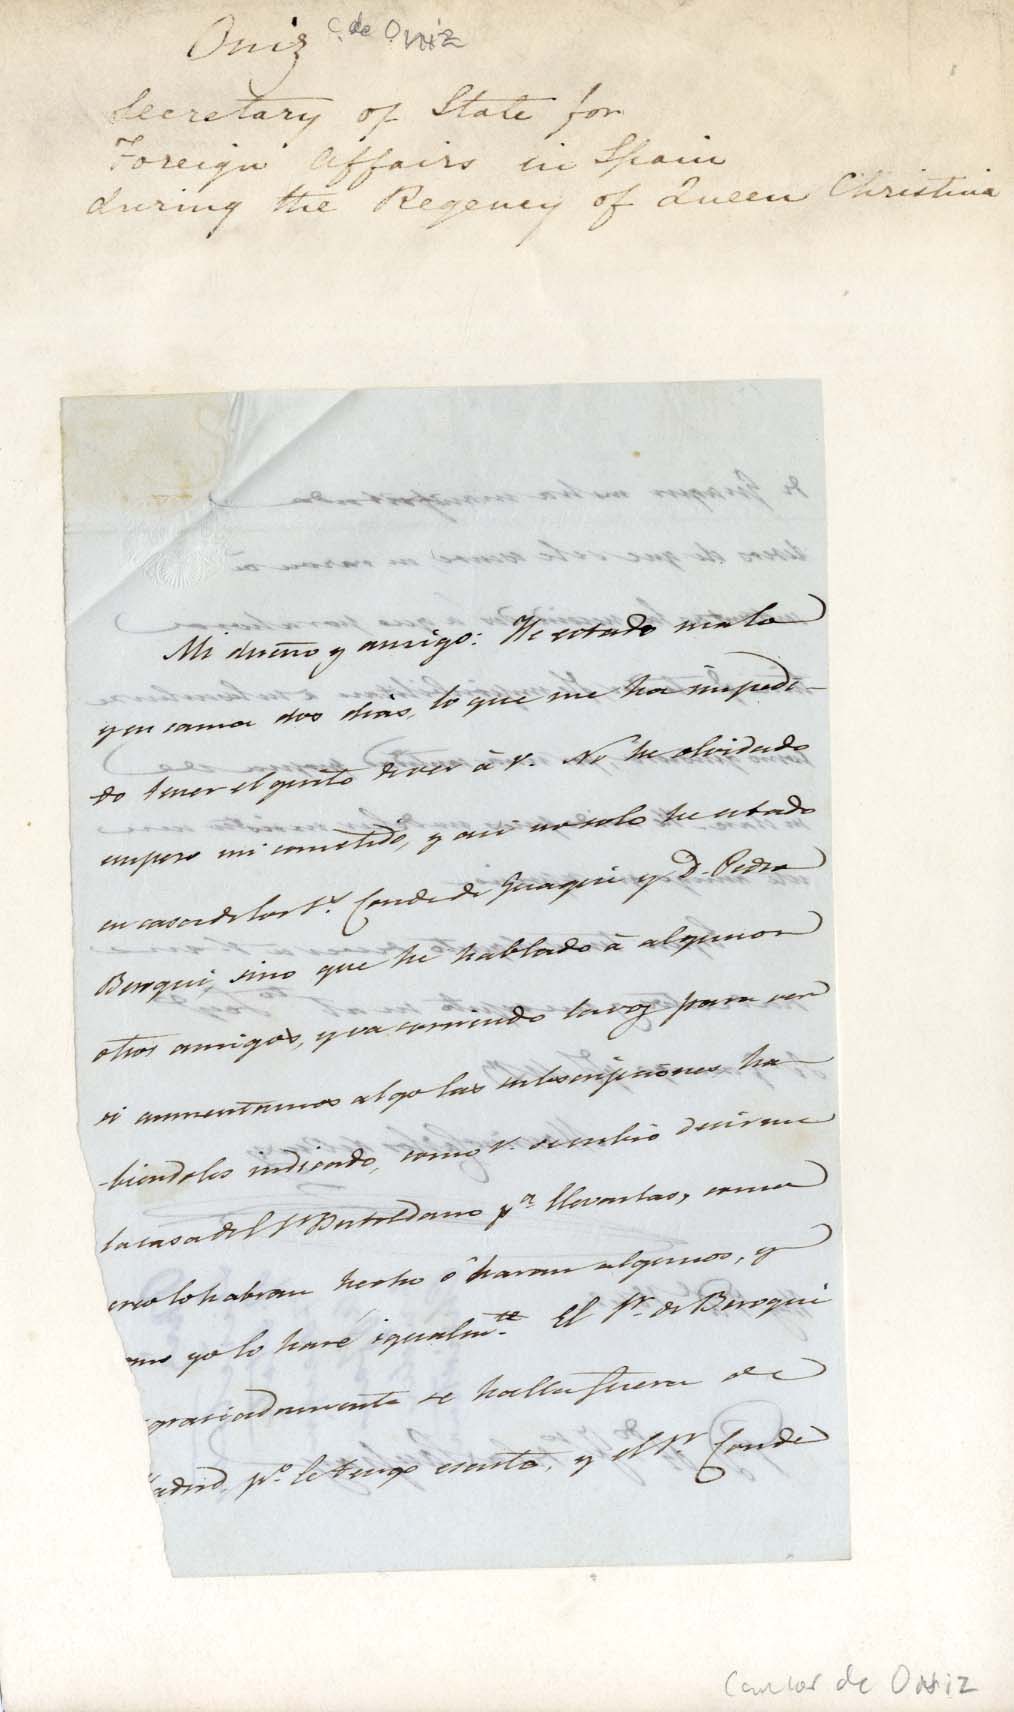 Oniz C. de Oniz
Secretary of State for
Foreign Affairs in Spain
during the Regency of Queen Christina
Mi dueño y amigo: He estado malo
y en cama dos dias, lo que me ha impedi-
do tener el gusto de ver à V. No he olvidado
empero mi cometido, y asi no solo he estado
en casa de los Sres. Conde de Guaqui y D. Pedro
Beroqui, sino que he hablado à algunos
otros amigos, y va corriendo la voz para ver
si aumentamos algo las subscripciones, ha-
biendoles indicado, como V. se sirbió decirme
la casa del Sr. Bertodano pa. llevarlas, como
creo lo habran hecho ó haran algunos, y
como yo lo haré igualmte. El Sr. de Beroqui
graciadamente se halla fuera de
adrid, po. le tengo escrito, y el Sr. Conde
Carlos de Oniz